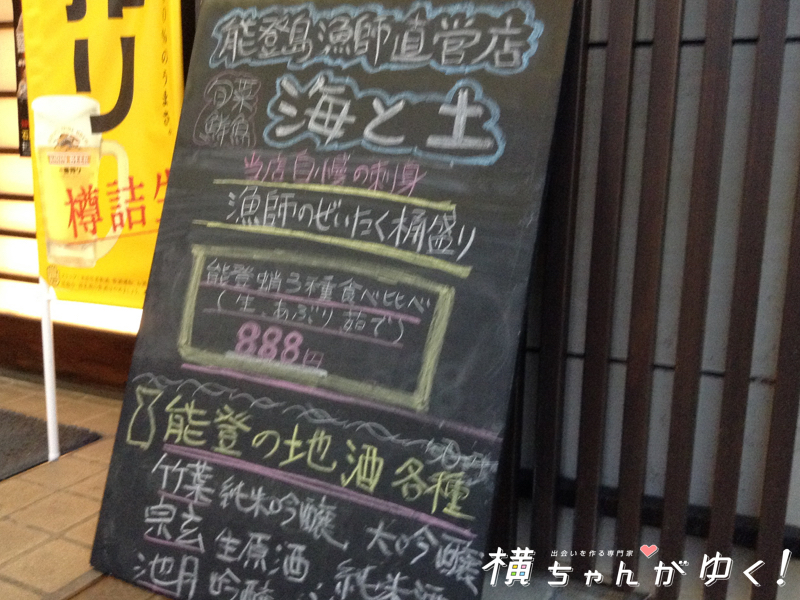 搾り
KIRIN BEER
一番搾り
樽詰生
能登島漁師直営店
旬菜
鮮魚
海と土
当店自慢の刺身
漁師のぜいたく桶盛り
能登蛸3種食べ比べ
(生、あぶり、茹で)
888円
能登の地酒各種
竹葉 純米吟醸 大吟醸
宗玄 生原酒 純米酒
池月 吟醸
出会いを作る専門家
横ちゃんがゆく!